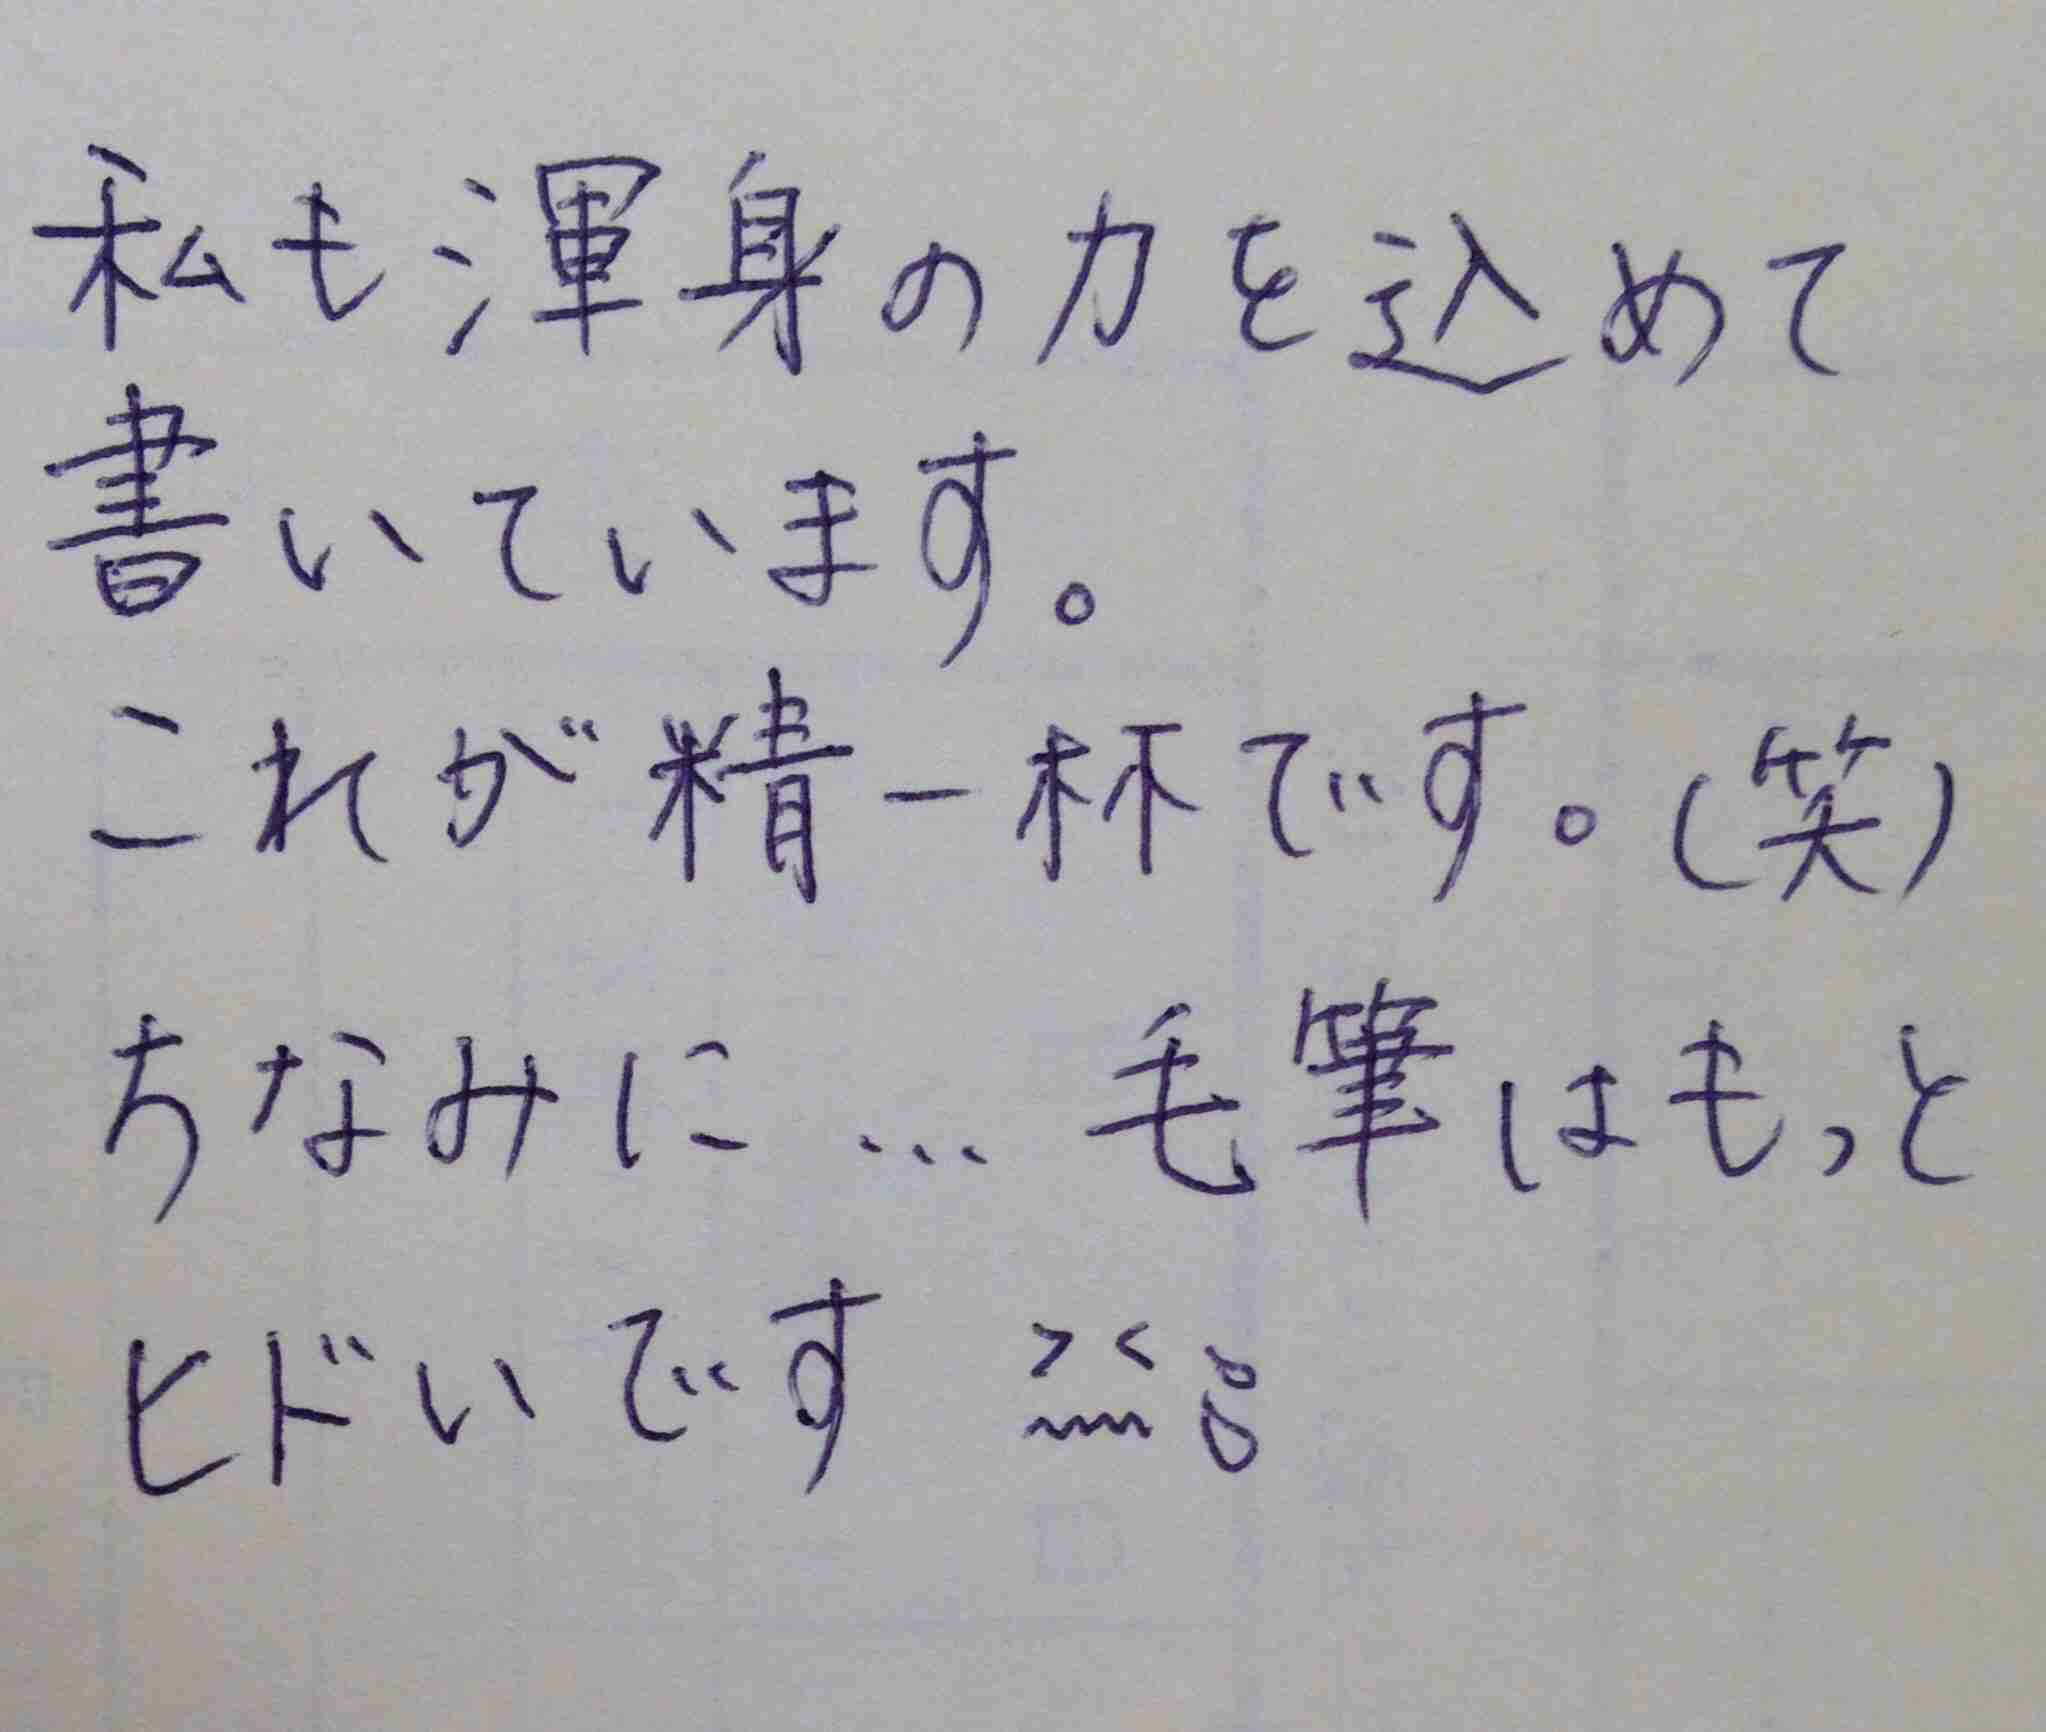 私も渾身の力を込めて
書いています。
これが精一杯です。(笑)
ちなみに…毛筆はもっと
ヒドいです